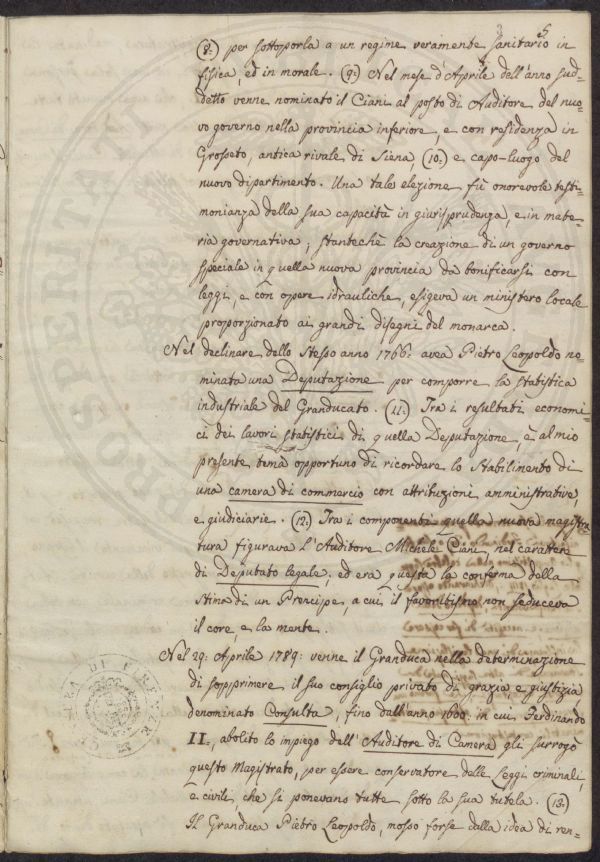 3 5
(8:) per sottoporla a un regime veramente sanitario in
fisica, ed in morale. (9:) Nel mese d'Aprile dell'anno sud=
detto venne nominato il Ciani al posto di Auditore del nuo=
vo governo nella provincia inferiore, e con residenza in
Grosseto, antica rivale di Siena (10:) e capo-luogo del
nuovo dipartimento. Una tale elezione fù onorevole testi=
monianza della sua capacità in giurisprudenza, e in mate=
ria governativa; stantechè la creazione di un governo
speciale in quella nuova provincia da bonificarsi con
leggi, e con opere idrauliche, esigeva un ministero locale
proporzionato ai grandi disegni del monarca.
Nel declinare dello stesso anno 1766: avea Pietro Leopoldo no=
minata una Deputazione per comporre la statistica
industriale del Granducato. (11:) Tra i resultati economi=
ci dei lavori statistici di quella Deputazione, è al mio
presente tema opportuno di ricordare lo stabilimento di
una camera di commercio con attribuzioni amministrative,
e giudiciarie. (12:) Tra i componenti quella nuova magistra=
tura figurava l'Auditore Michele Ciani, nel carattere
di Deputato legale, ed era questa la conferma della
stima di un Prencipe, a cui il favoritismo non seduceva
il core, e la mente.
Nel 29: Aprile 1789: venne il Granduca nella determinazione
di sopprimere il suo consiglio privato di grazia e giustizia
denominato Consulta, fino dall'anno 1600. in cui Ferdinando
II:, abolito lo impiego dell'Auditore di Camera gli surrogò
questo Magistrato, per essere conservatore delle Leggi criminali,
e civili, che si ponevano tutte sotto la sua tutela. (13:)
Il Granduca Pietro Leopoldo, mosso forse dalla idea di ren=
PROSPERITATI
CAMERA DI FIRENZE